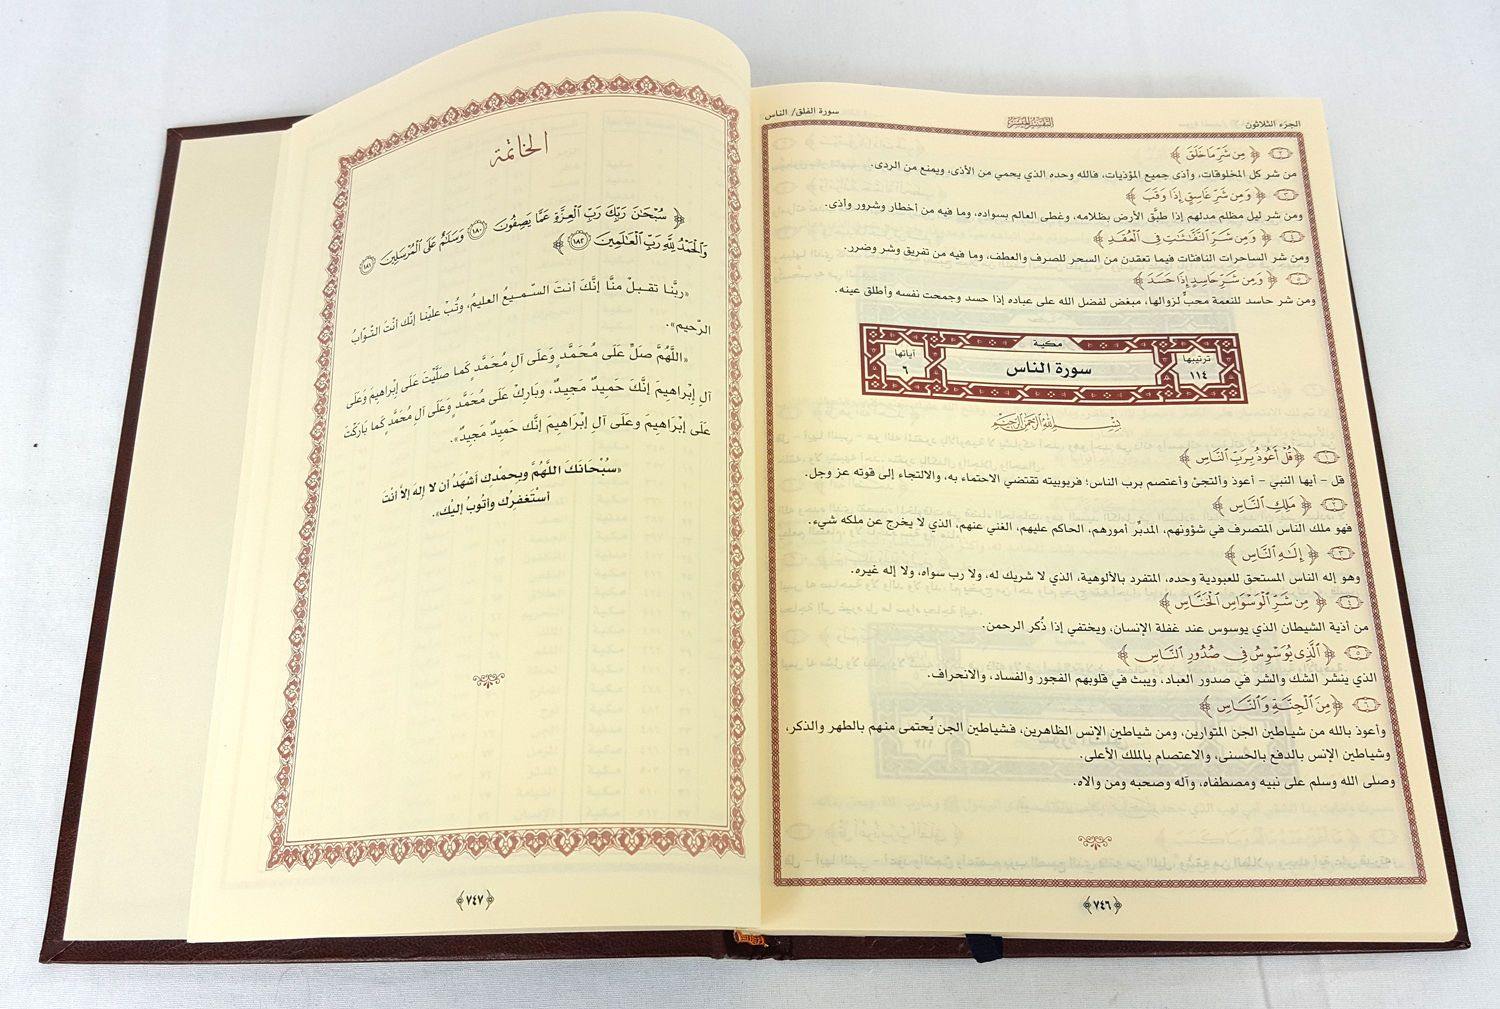 الجزء الثلاثون
التفسير الميسر
سورة الفلق/ الناس
﴿٢﴾ ﴿ مِن شَرِّ مَا خَلَقَ ﴾
من شر كل المخلوقات، وأذى جميع المؤذيات، فالله وحده الذي يحمي من الأذى، ويمنع من الردى.
﴿٣﴾ ﴿ وَمِن شَرِّ غَاسِقٍ إِذَا وَقَبَ ﴾
ومن شر ليل مظلم مدلهم إذا طبَّق الأرض بظلامه، وغطى العالم بسواده، وما فيه من أخطار وشرور وأذى.
﴿٤﴾ ﴿ وَمِن شَرِّ ٱلنَّفَّـٰثَـٰتِ فِى ٱلْعُقَدِ ﴾
ومن شر الساحرات النافثات فيما تعقدن من السحر للصرف والعطف، وما فيه من تفريق وشر وضرر.
﴿٥﴾ ﴿ وَمِن شَرِّ حَاسِدٍ إِذَا حَسَدَ ﴾
ومن شر حاسد للنعمة محبٍّ لزوالها، مبغض لفضل الله على عباده إذا حسد وجمحت نفسه وأطلق عينه.
مكية
ترتيبها ١١٤
سورة الناس
آياتها ٦
بِسْمِ ٱللَّهِ ٱلرَّحْمَـٰنِ ٱلرَّحِيمِ
﴿١﴾ ﴿ قُلْ أَعُوذُ بِرَبِّ ٱلنَّاسِ ﴾
قل – أيها النبي – أعوذ وألتجئ وأعتصم برب الناس؛ فربوبيته تقتضي الاحتماء به، والالتجاء إلى قوته عز وجل.
﴿٢﴾ ﴿ مَلِكِ ٱلنَّاسِ ﴾
فهو ملك الناس المتصرف في شؤونهم، المدبِّر أمورهم، الحاكم عليهم، الغني عنهم، الذي لا يخرج عن ملكه شيء.
﴿٣﴾ ﴿ إِلَـٰهِ ٱلنَّاسِ ﴾
وهو إله الناس المستحق للعبودية وحده، المتفرد بالألوهية، الذي لا شريك له، ولا رب سواه، ولا إله غيره.
﴿٤﴾ ﴿ مِن شَرِّ ٱلْوَسْوَاسِ ٱلْخَنَّاسِ ﴾
من أذية الشيطان الذي يوسوس عند غفلة الإنسان، ويختفي إذا ذُكر الرحمن.
﴿٥﴾ ﴿ ٱلَّذِى يُوَسْوِسُ فِى صُدُورِ ٱلنَّاسِ ﴾
الذي ينشر الشك والشر في صدور العباد، ويبث في قلوبهم الفجور والفساد، والانحراف.
﴿٦﴾ ﴿ مِنَ ٱلْجِنَّةِ وَٱلنَّاسِ ﴾
وأعوذ بالله من شياطين الجن المتوارين، ومن شياطين الإنس الظاهرين، فشياطين الجن يُحتمى منهم بالطهر والذكر،
وشياطين الإنس بالدفع بالحسنى، والاعتصام بالملك الأعلى.
وصلى الله وسلم على نبيه ومصطفاه، وآله وصحبه ومن والاه.
﴿٧٤٦﴾
الخاتمة
﴿ سُبْحَـٰنَ رَبِّكَ رَبِّ ٱلْعِزَّةِ عَمَّا يَصِفُونَ ﴿١٨٠﴾ وَسَلَـٰمٌ عَلَى ٱلْمُرْسَلِينَ ﴿١٨١﴾
وَٱلْحَمْدُ لِلَّهِ رَبِّ ٱلْعَـٰلَمِينَ ﴿١٨٢﴾ ﴾
«ربَّنا تقبلْ منَّا إنَّكَ أنتَ السّميعُ العليمُ، وتُبْ علَيْنا إنّكَ أنْتَ التّوّابُ
الرّحيم».
«اللَّهُمَّ صَلِّ عَلَى مُحَمَّدٍ وَعَلَى آلِ مُحَمَّدٍ كَما صَلَّيْتَ عَلَى إبْراهيمَ وَعَلَى
آلِ إبْراهيمَ إنَّكَ حَميدٌ مَجيدٌ، وَبَارِكْ عَلَى مُحَمَّدٍ وَعَلَى آلِ مُحَمَّدٍ كَمَا بَارَكْتَ
عَلَى إبْرَاهيمَ وعَلَى آلِ إبْرَاهيمَ إنَّكَ حَميدٌ مَجيدٌ».
«سُبْحَانَكَ اللَّهُمَّ وبحمْدك أشْهَدُ أن لا إلهَ إلاَّ أنْتَ
أسْتَغفِرُك وأتُوبُ إليْك».
﴿٧٤٧﴾